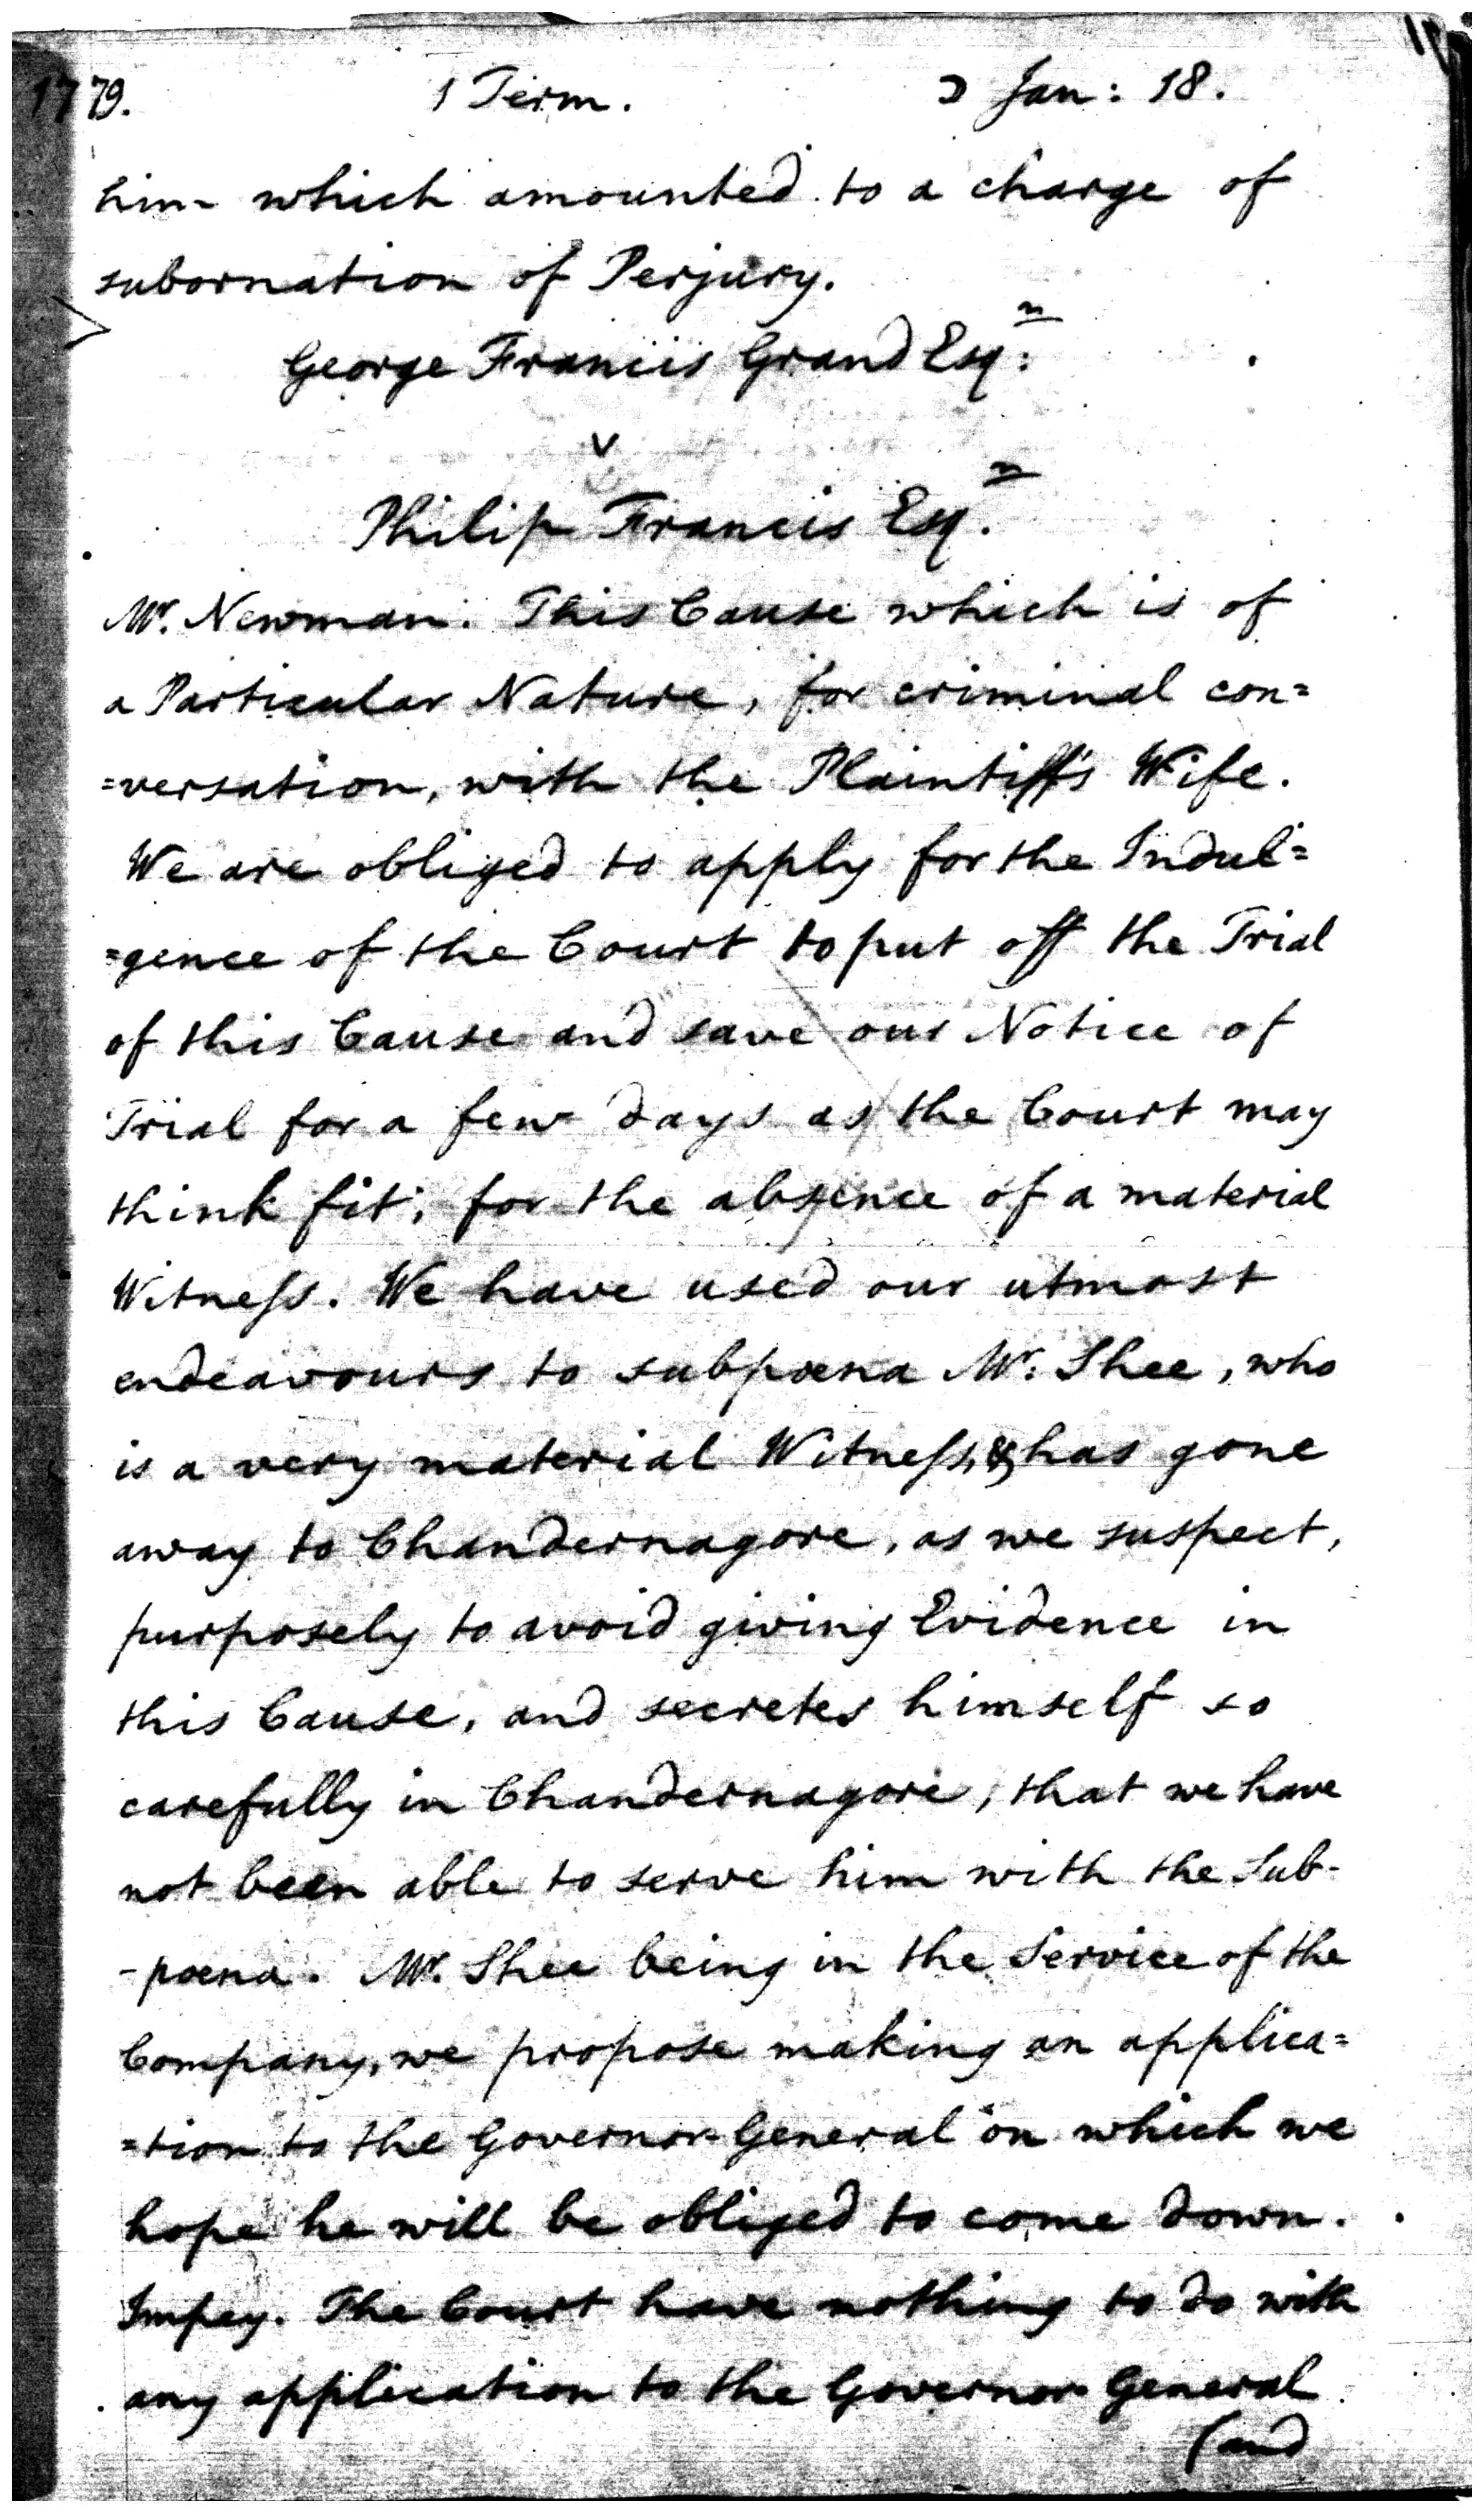 1779. 1 Term. ☽ Jan: 18.
him which amounted to a charge of
subornation of Perjury.
George Francis Grand Esq:
v
Philip Francis Esq.
Mr. Newman. This Cause which is of
a Particular Nature, for criminal con=
=versation, with the Plaintiff's Wife.
We are obliged to apply for the Indul=
=gence of the Court to put off the Trial
of this Cause and save our Notice of
Trial for a few days as the Court may
think fit, for the absence of a material
Witness. We have used our utmost
endeavours to subpoena Mr. Shee, who
is a very material Witness, & has gone
away to Chandernagore, as we suspect,
purposely to avoid giving Evidence in
this Cause, and secretes himself so
carefully in Chandernagore, that we have
not been able to serve him with the Sub-
-poena. Mr. Shee being in the Service of the
Company, we propose making an applica=
=tion to the Governor General on which we
hope he will be obliged to come down.
Impey. The Court have nothing to do with
any application to the Governor General
(and